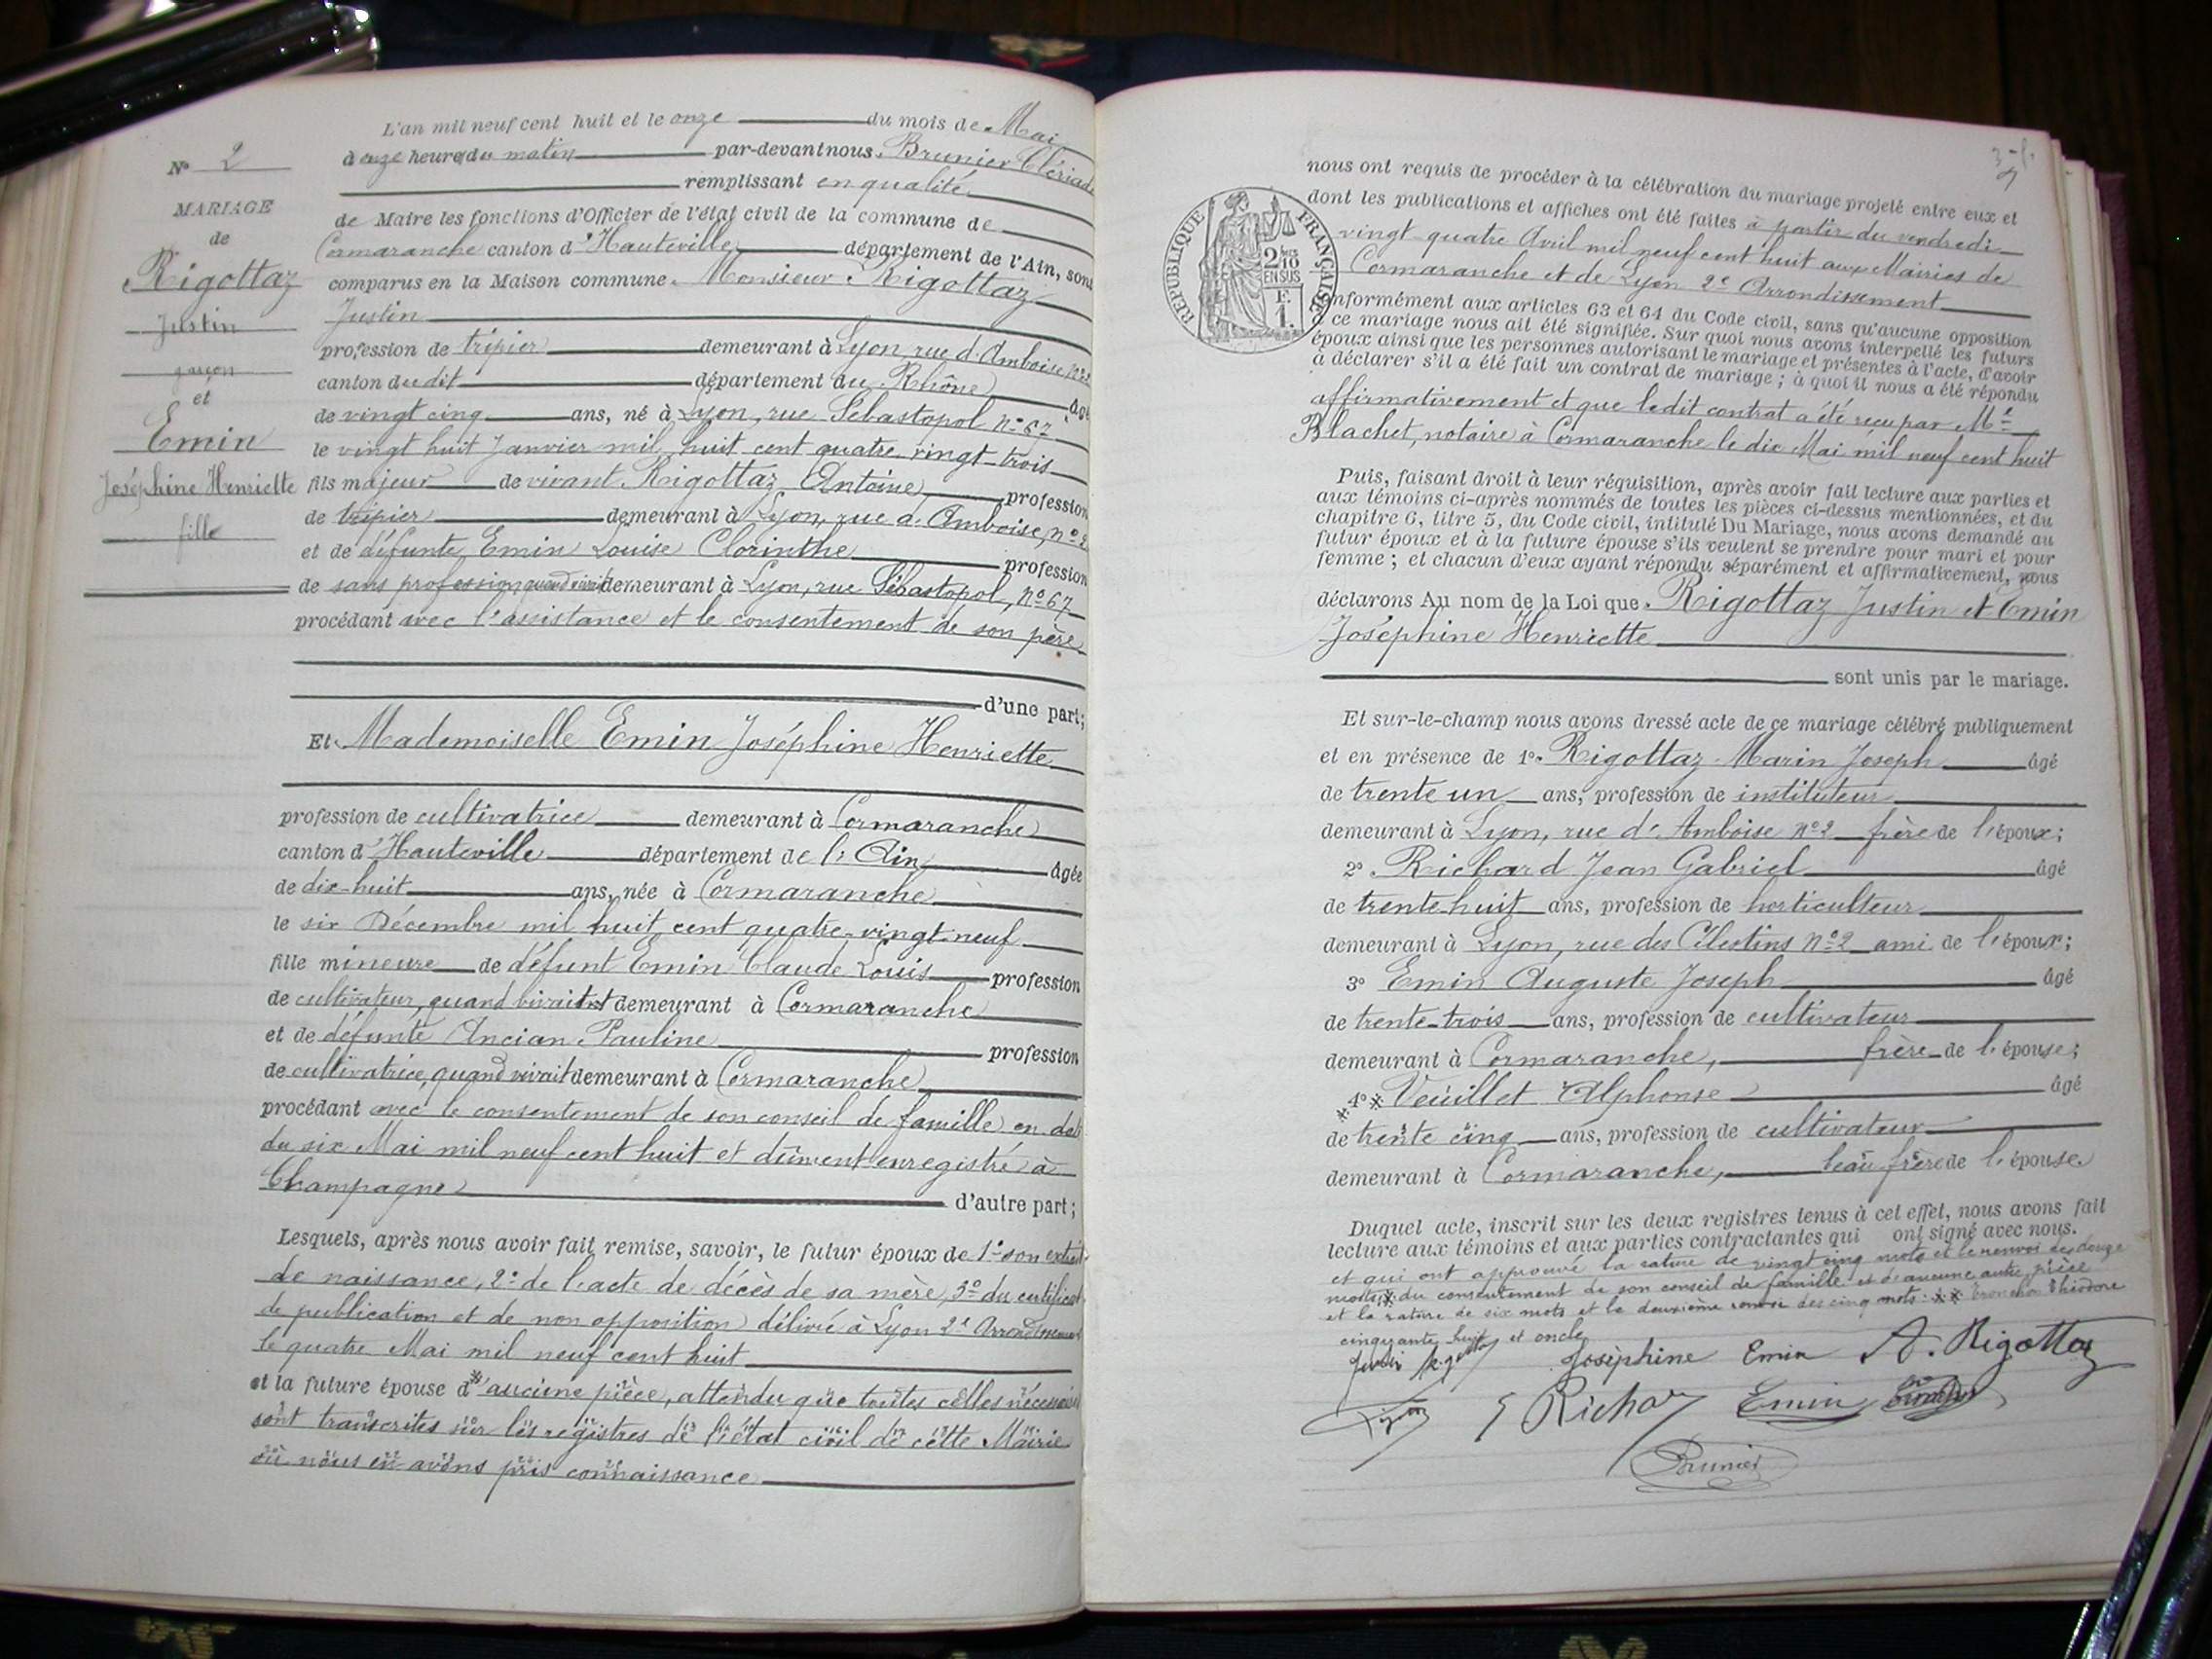 N° 2
MARIAGE
de
Rigottaz
Justin
garçon
et
Emin
Joséphine Henriette
fille
L'an mil neuf cent huit et le onze du mois de Mai
à onze heures du matin par-devant nous, Brunier Clériade
remplissant en qualité
de Maire les fonctions d'Officier de l'état civil de la commune de
Cormaranche canton d'Hauteville département de l'Ain, sont
comparus en la Maison commune. Monsieur Rigottaz
Justin
profession de tripier demeurant à Lyon, rue d'Amboise n° 2
canton dudit département du Rhône âgé
de vingt cinq ans, né à Lyon, rue Sébastopol n° 67
le vingt huit Janvier mil huit cent quatre vingt-trois
fils majeur de vivant Rigottaz Antoine profession
de tripier demeurant à Lyon, rue d'Amboise, n° 2
et de défunte Emin Louise Clorinthe profession
de sans profession quand vivait demeurant à Lyon, rue Sébastopol, n° 67
procédant avec l'assistance et le consentement de son père
d'une part;
Et Mademoiselle Emin Joséphine Henriette
profession de cultivatrice demeurant à Cormaranche
canton d'Hauteville département de l'Ain âgée
de dix-huit ans, née à Cormaranche
le six Décembre mil huit cent quatre-vingt-neuf
fille mineure de défunt Emin Claude Louis profession
de cultivateur, quand vivait demeurant à Cormaranche
et de défunte Ancian Pauline profession
de cultivatrice, quand vivait demeurant à Cormaranche
procédant avec le consentement de son conseil de famille en date
du six Mai mil neuf cent huit et dûment enregistré à
Champagne d'autre part;
Lesquels, après nous avoir fait remise, savoir, le futur époux de 1° son extrait
de naissance, 2° de l'acte de décès de sa mère, 3° du certificat
de publication et de non opposition délivré à Lyon 2e Arrondissement
le quatre Mai mil neuf cent huit
et la future épouse d'aucune pièce, attendu que toutes celles nécessaires
sont transcrites sur les registres de l'état civil de cette Mairie
où nous en avons pris connaissance
REPUBLIQUE FRANÇAISE
2/10 EN SUS
F. 1.
nous ont requis de procéder à la célébration du mariage projeté entre eux et
dont les publications et affiches ont été faites à partir du vendredi
vingt quatre Avril mil neuf cent huit aux Mairies de
Cormaranche et de Lyon 2e Arrondissement
conformément aux articles 63 et 64 du Code civil, sans qu'aucune opposition
à ce mariage nous ait été signifiée. Sur quoi nous avons interpellé les futurs
époux ainsi que les personnes autorisant le mariage et présentes à l'acte, d'avoir
à déclarer s'il a été fait un contrat de mariage; à quoi il nous a été répondu
affirmativement et que ledit contrat a été reçu par Me
Blachet, notaire à Cormaranche le dix Mai mil neuf cent huit
Puis, faisant droit à leur réquisition, après avoir fait lecture aux parties et
aux témoins ci-après nommés de toutes les pièces ci-dessus mentionnées, et du
chapitre 6, titre 5, du Code civil, intitulé Du Mariage, nous avons demandé au
futur époux et à la future épouse s'ils veulent se prendre pour mari et pour
femme; et chacun d'eux ayant répondu séparément et affirmativement, nous
déclarons Au nom de la Loi que. Rigottaz Justin et Emin
Joséphine Henriette
sont unis par le mariage.
Et sur-le-champ nous avons dressé acte de ce mariage célébré publiquement
et en présence de 1°. Rigottaz Marin Joseph âgé
de trente un ans, profession de instituteur
demeurant à Lyon, rue d'Amboise n° 2 frère de l'époux;
2° Richard Jean Gabriel âgé
de trente-huit ans, profession de horticulteur
demeurant à Lyon, rue des Célestins n° 2 ami de l'époux;
3° Emin Auguste Joseph âgé
de trente-trois ans, profession de cultivateur
demeurant à Cormaranche, frère de l'épouse;
4° Veuillet Alphonse âgé
de trente cinq ans, profession de cultivateur
demeurant à Cormaranche, beau frère de l'épouse.
Duquel acte, inscrit sur les deux registres tenus à cet effet, nous avons fait
lecture aux témoins et aux parties contractantes qui ont signé avec nous.
et qui ont approuvé la rature de vingt cinq mots et le renvoi de douze
mots * du consentement de son conseil de famille et d'aucune autre pièce
et la rature de six mots et le deuxième renvoi des cinq mots: ** Tronchon Théodore
cinquante huit et oncle
Justin Rigottaz Joséphine Emin A. Rigottaz
Richard Emin
Brunier